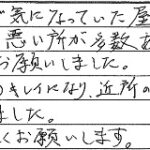 気になっていた屋
悪い所が多数あ
お願いしました。
キレイになり、近所の
ました。
くお願いします。